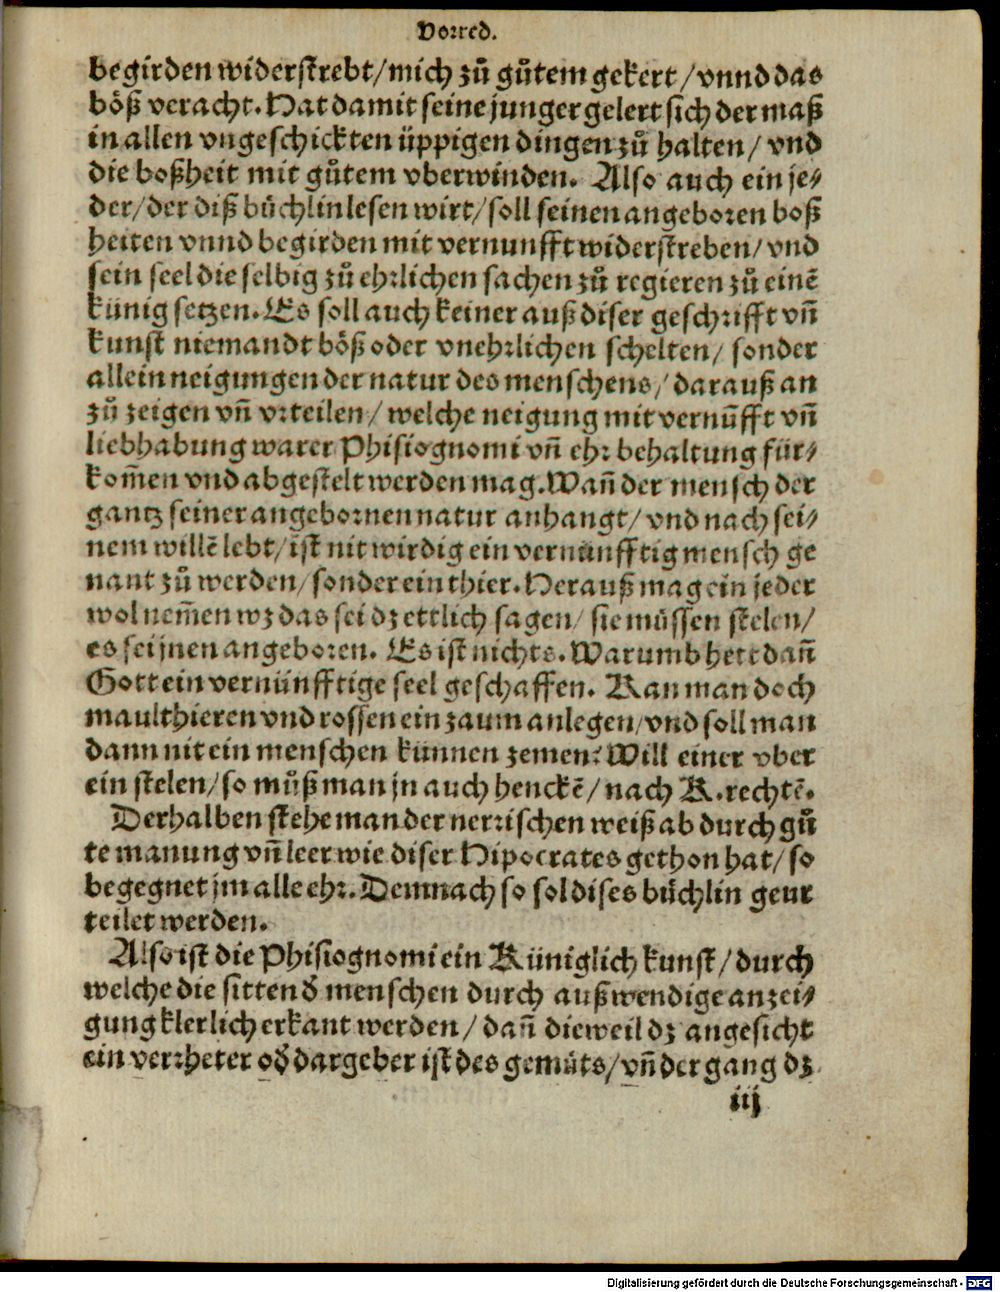 Vorred.
begirden widerstrebt/mich zů gůtem gekert/vnnd das
böß veracht. Hat damit seine junger gelert sich der maß
in allen vngeschickten üppigen dingen zů halten/ vnd
die boßheit mit gůtem vberwinden. Also auch ein je⸗
der/der diß büchlin lesen wirt/soll seinen angeboꝛen boß
heiten vnnd begirden mit vernunfft widerstreben/ vnd
sein seel die selbig zů ehꝛlichen sachen zů regieren zů einē
künig setzen. Es soll auch keiner auß diser geschꝛifft vñ
kunst niemandt böß oder vnehꝛlichen schelten/ sonder
allein neigungen der natur des menschens/ darauß an
zů zeigen vñ vꝛteilen/ welche neigung mit vernūfft vñ
liebhabung warer Phisiognomi vñ ehꝛ behaltung für⸗
kom̄en vnd abgestelt werden mag. Wañ der mensch der
gantz seiner angeboꝛnen natur anhangt/ vnd nach sei⸗
nem willē lebt/ist nit wirdig ein vernünfftig mensch ge
nant zů werden/sonder ein thier. Herauß mag ein jeder
wol nem̄en wz das sei dz ettlich sagen/ sie müssen stelen/
es sei jnen angeboꝛen. Es ist nichts. Warumb hett dañ
Gott ein vernünfftige seel geschaffen. Kan man doch
maulthieren vnd rossen ein zaum anlegen/vnd soll man
dann nit ein menschen künnen zemen? Will einer vber
ein stelen/so můß man jn auch henckē/nach K. rechtē.
Derhalben stehe man der nerꝛischen weiß ab durch gů
te manung vñ leer wie diser Hipocrates gethon hat/so
begegnet jm alle ehꝛ. Demnach so sol dises büchlin geur
teilet werden.
Also ist die Phisiognomi ein Küniglich kunst/durch
welche die sitten đ menschen durch außwendige anzei⸗
gung klerlich erkant werden/ dañ dieweil dz angesicht
ein verꝛheter ođ dargeber ist des gemüts/vñ der gang dz
iij
Digitalisierung gefördert durch die Deutsche Forschungsgemeinschaft - DFG